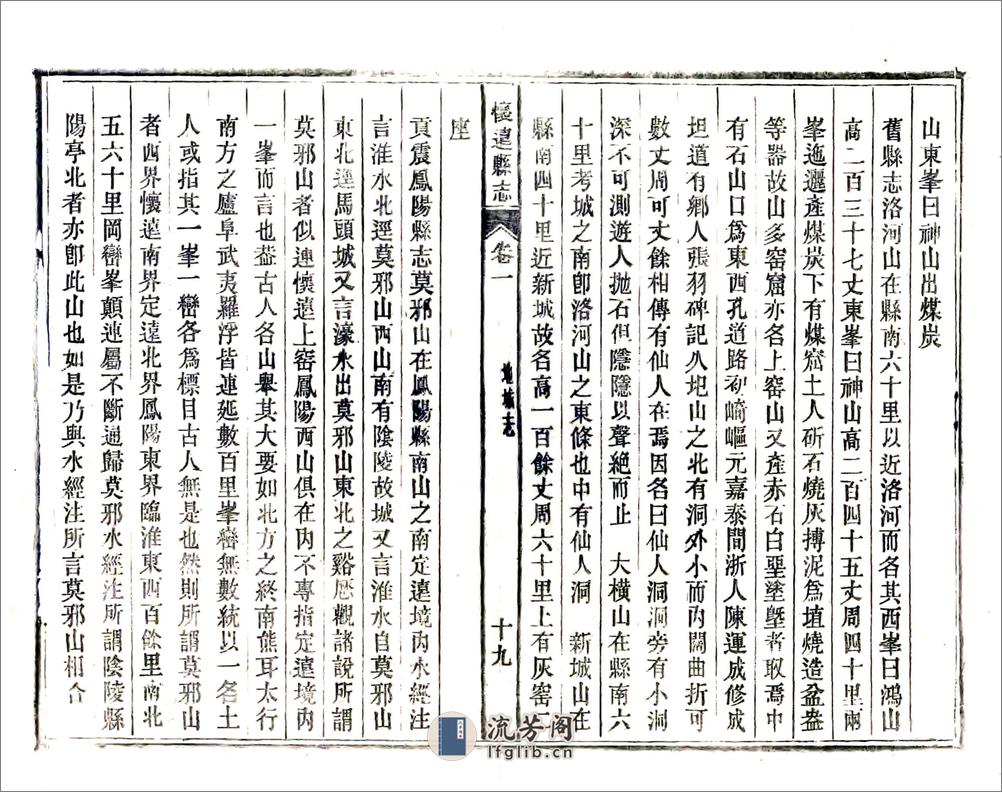 山東峯曰神山出煤炭
舊縣志洛河山在縣南六十里以近洛河而名其西峯曰鴻山
高二百三十七丈東峯曰神山高二百四十五丈周四十里兩
峯迤邐產煤炭下有煤窟土人斫石燒灰摶泥爲埴燒造盆盎
等器故山多窑窟亦名上窑山又產赤石白堊塗塈者取焉中
有石山口爲東西孔道路初崎嶇元嘉泰間浙人陳運成修成
坦道有鄉人張羽碑記久圯山之北有洞外小而內闊曲折可
數丈周可丈餘相傳有仙人在焉因名曰仙人洞洞旁有小洞
深不可測遊人拋石但隱隱以聲絕而止　大橫山在縣南六
十里考城之南卽洛河山之東條也中有仙人洞　新城山在
縣南四十里近新城故名高一百餘丈周六十里上有灰窑一
懷遠縣志　卷一　地域志　十九
座
貢震鳳陽縣志莫邪山在鳳陽縣南山之南定遠境內水經注
言淮水北逕莫邪山西山南有陰陵故城又言淮水自莫邪山
東北逕馬頭城又言濠水出莫邪山東北之谿厯觀諸說所謂
莫邪山者似連懷遠上窑鳳陽西山俱在內不專指定遠境內
一峯而言也葢古人名山舉其大要如北方之終南熊耳太行
南方之廬阜武夷羅浮皆連延數百里峯巒無數統以一名土
人或指其一峯一巒各爲標目古人無是也然則所謂莫邪山
者西界懷遠南界定遠北界鳳陽東界臨淮東西百餘里南北
五六十里岡巒峯巔連屬不斷通歸莫邪水經注所謂陰陵縣
陽亭北者亦卽此山也如是乃與水經注所言莫邪山相合
流芳阁
lfglib.cn